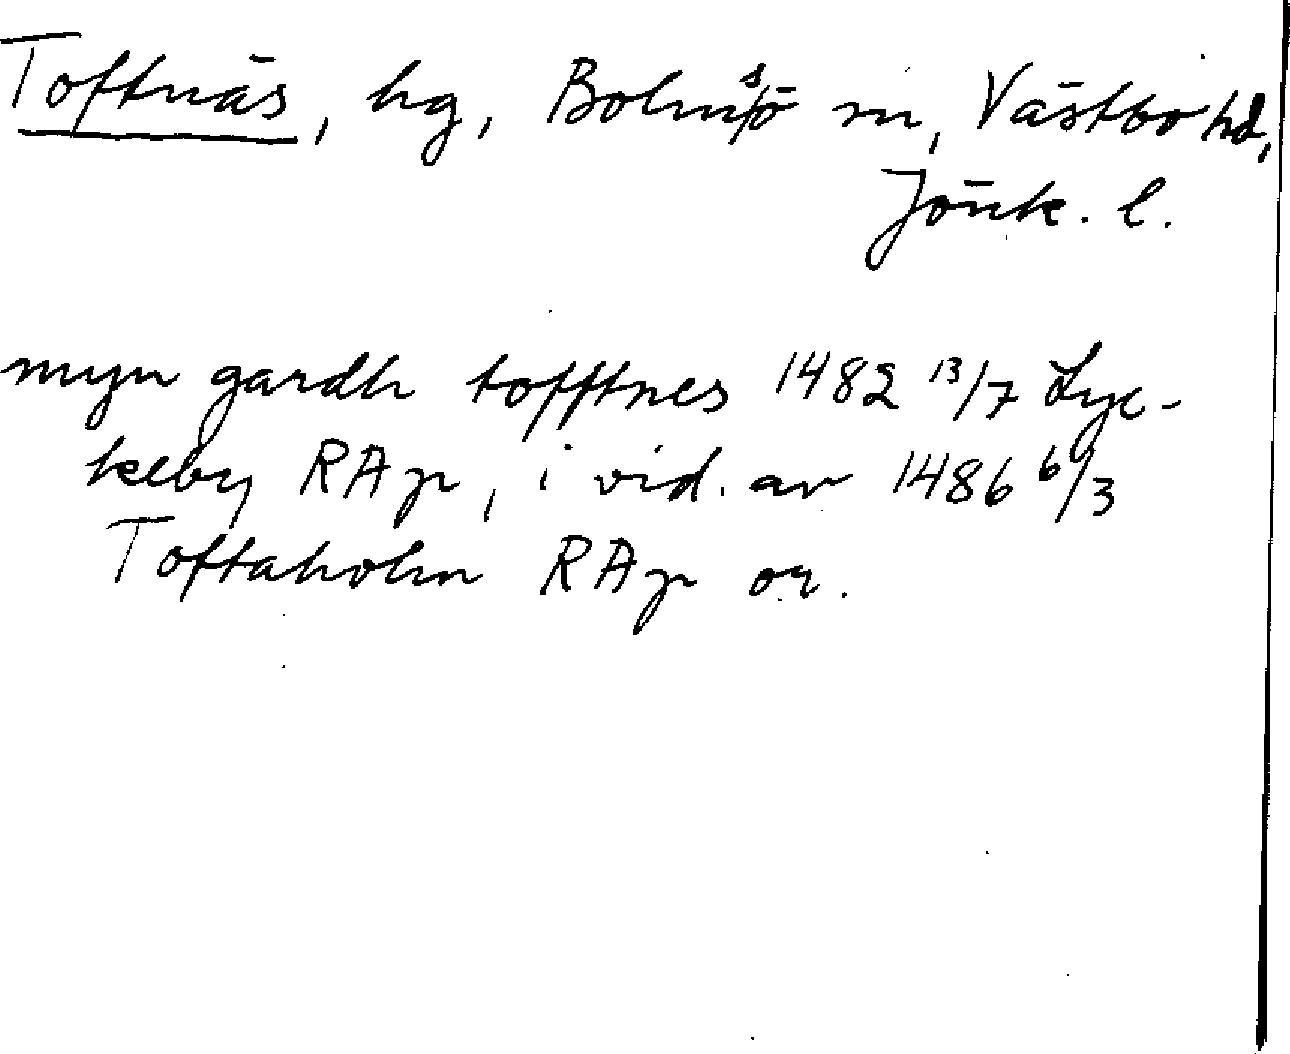 Toftnäs, hg, Bolmsö sn, Västbo hd,
Jönk. l.
myn gardh tofftnes 1482 13/7 Lyc-
keby RAp, i vid. av 1486 6/3
Toftaholm RAp or.